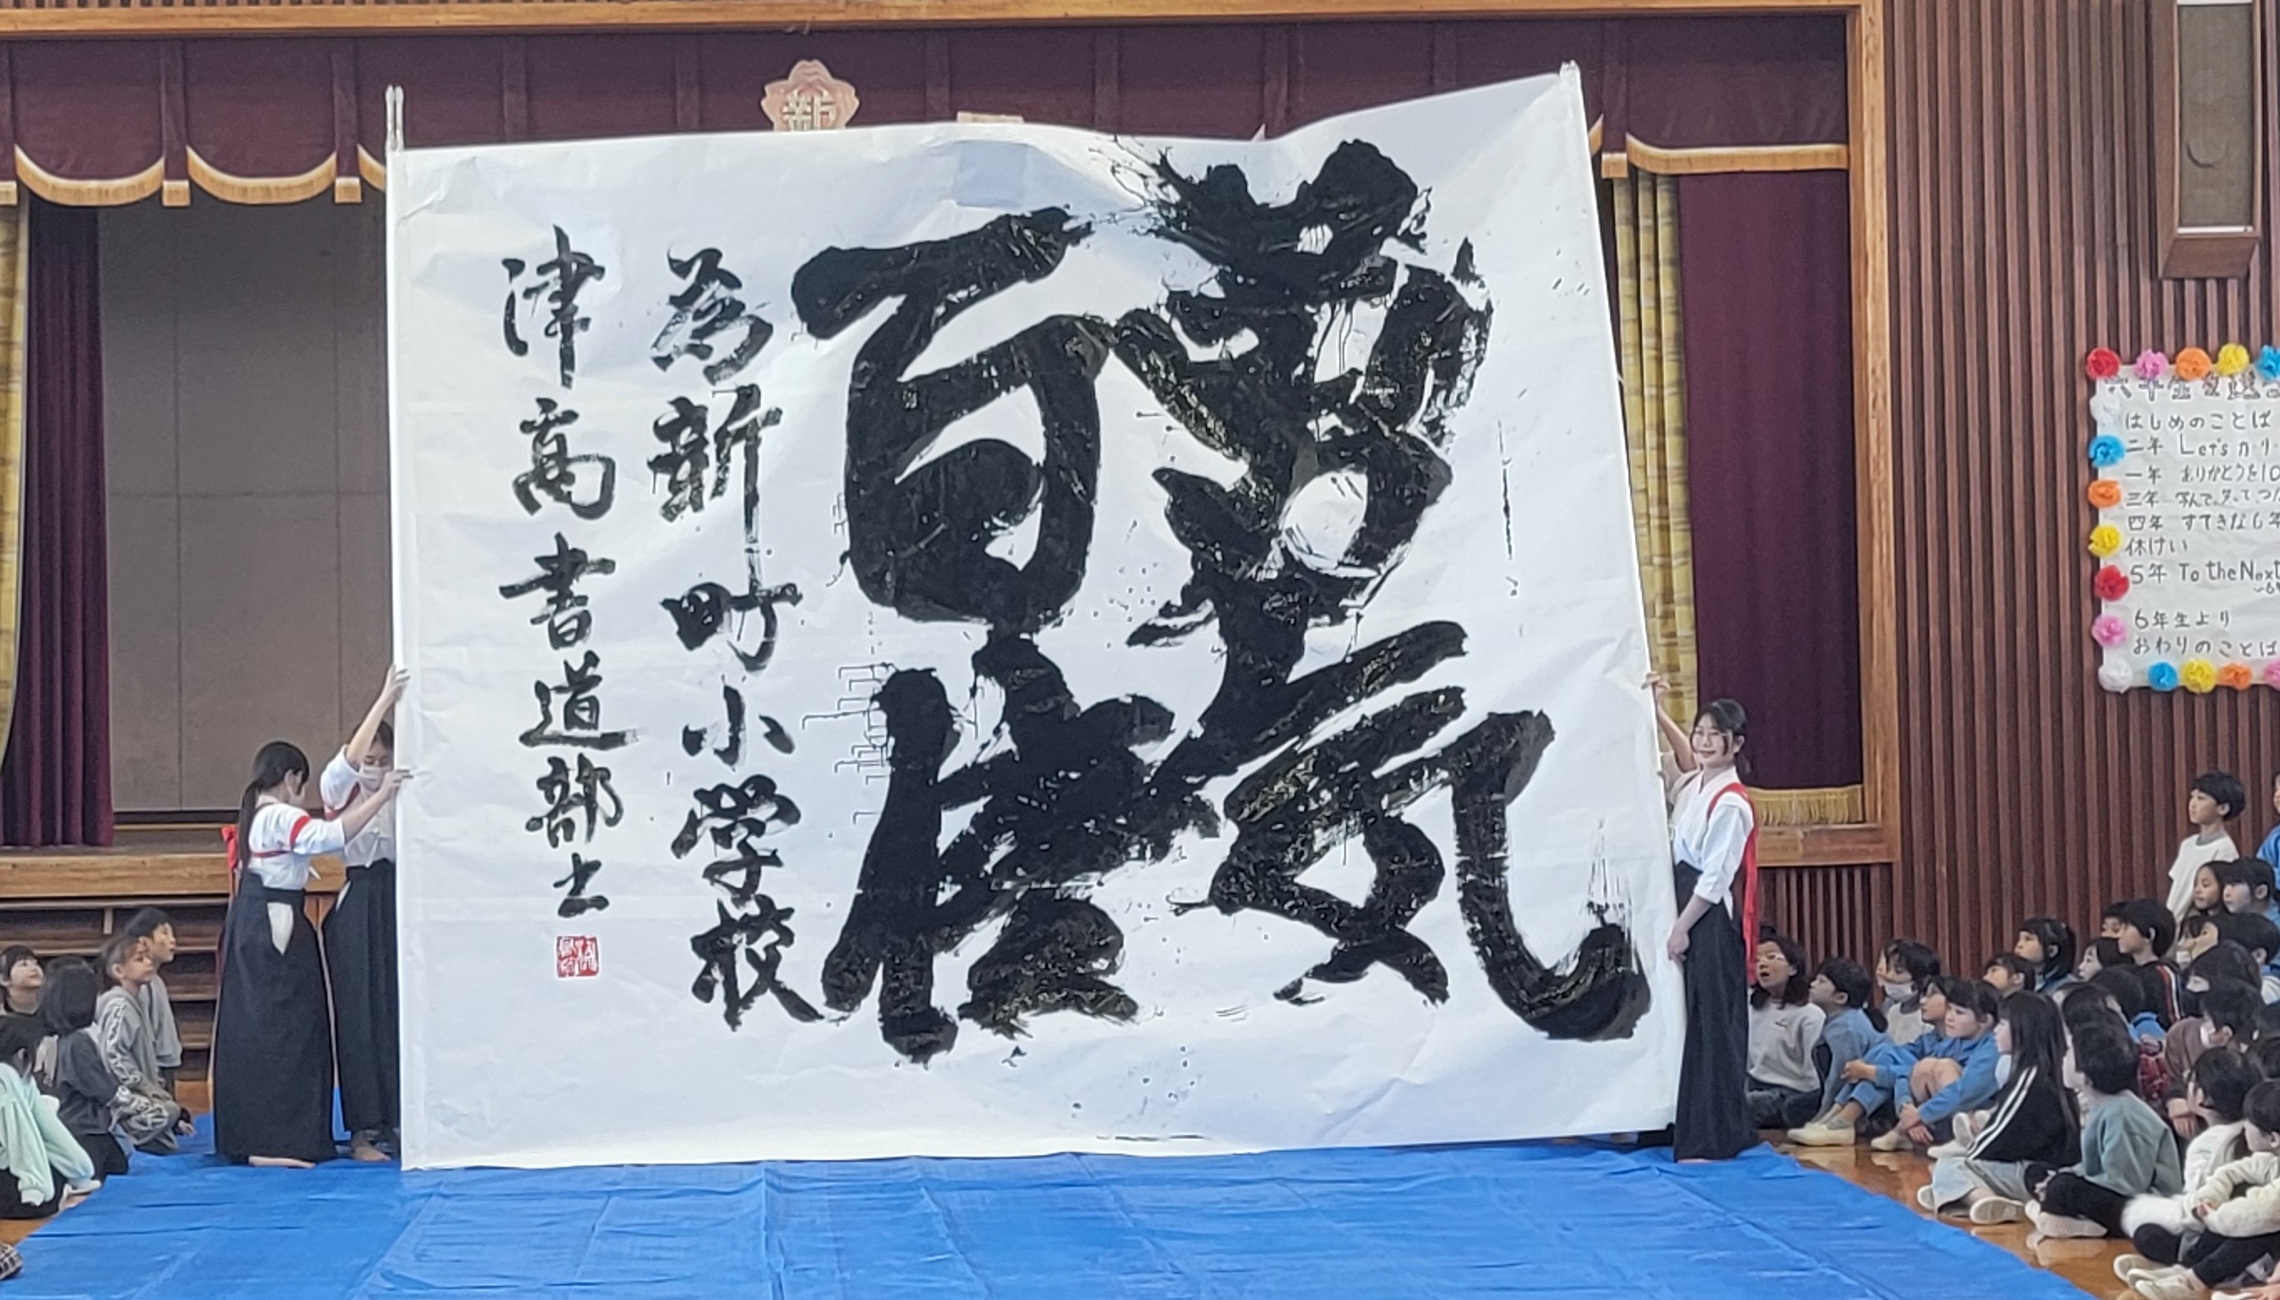 新
勇気
百倍
為新町小学校
津高書道部
六年生を送
はじめのことば
二年 Let's
一年 ありがとうを10
三年
四年 すてきな6年
休けい
5年 To the Next
6年生より
おわりのことば